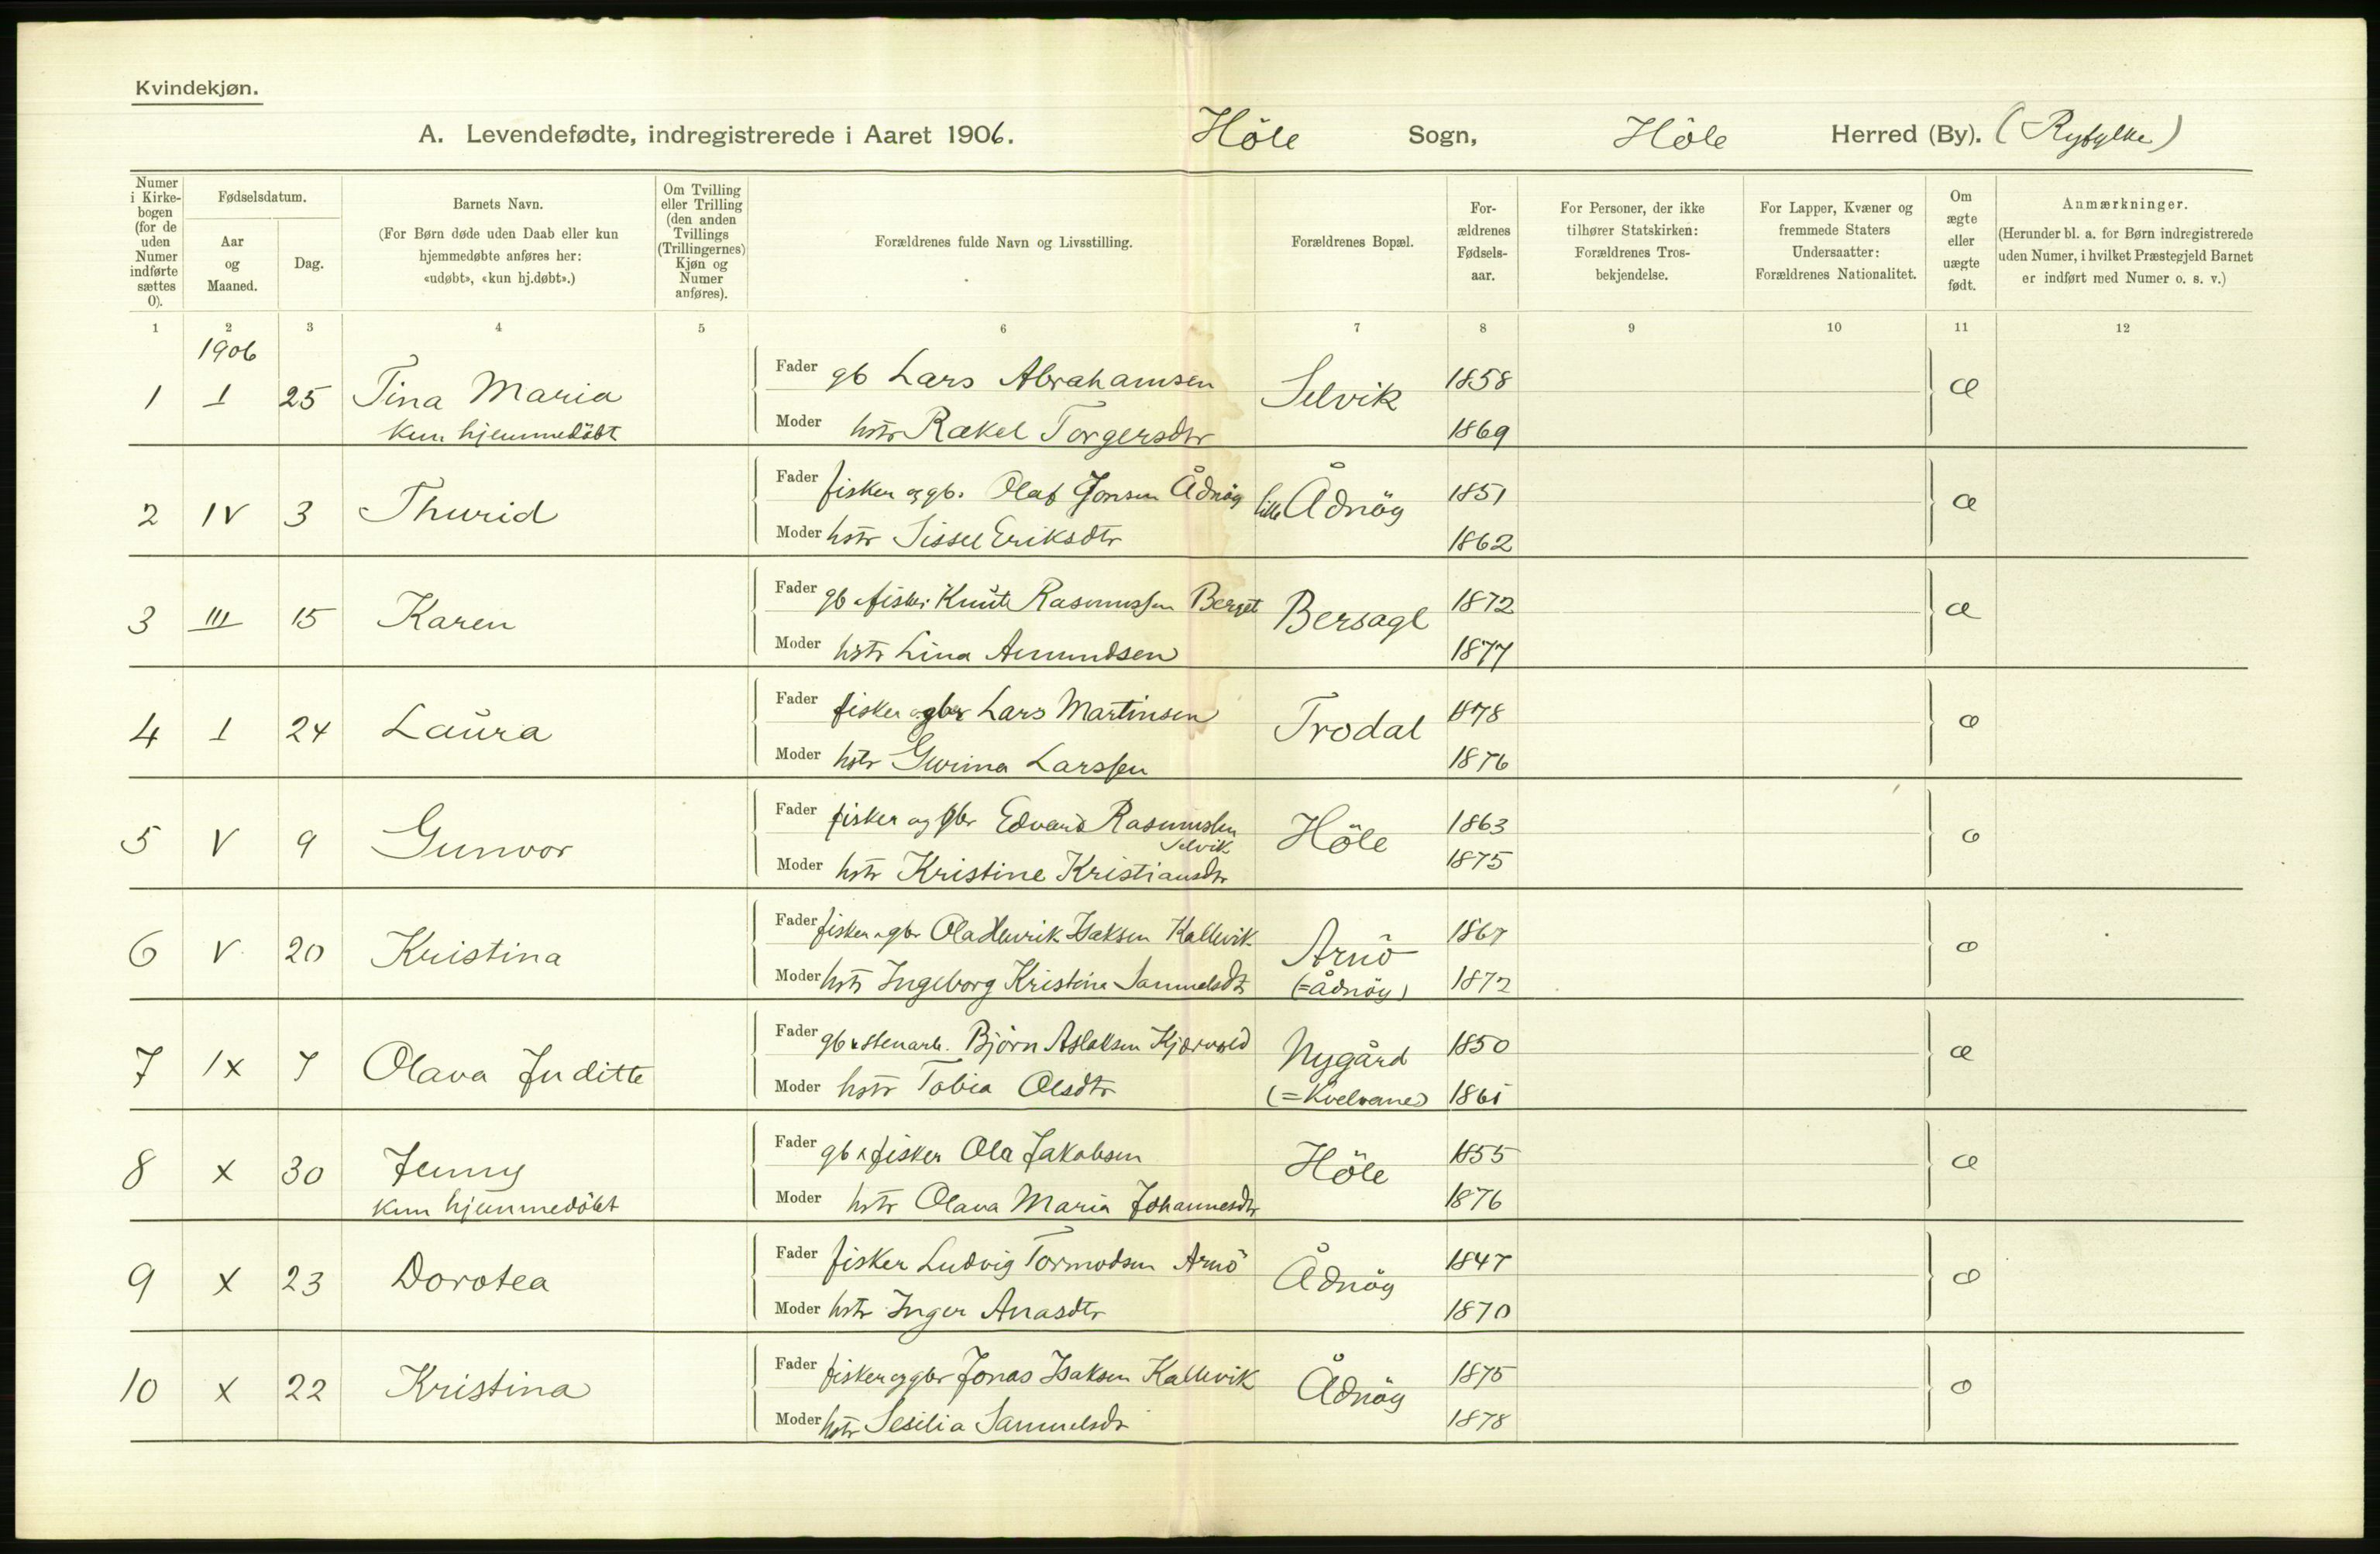 Kvindekjøn.
A. Levendefødte, indregistrerede i Aaret 1906. Höle Sogn, Höle Herred (By). (Ryfylke)
Numer i Kirkebogen (for de uden Numer indførte sættes 0).
Fødselsdatum.
Aar og Maaned.
Dag.
Barnets Navn.
(For Børn døde uden Daab eller kun hjemmedøbte anføres her: «udøbt», «kun hj.døbt».)
Om Tvilling eller Trilling (den anden Tvillings (Trillingernes) Kjøn og Numer anføres).
Forældrenes fulde Navn og Livsstilling.
Forældrenes Bopæl.
Forældrenes Fødselsaar.
For Personer, der ikke tilhører Statskirken: Forældrenes Trosbekjendelse.
For Lapper, Kvæner og fremmede Staters Undersaatter: Forældrenes Nationalitet.
Om ægte eller uægte født.
Anmærkninger.
(Herunder bl. a. for Børn indregistrerede uden Numer, i hvilket Præstegjeld Barnet er indført med Numer o. s. v.)
1 2 3 4 5 6 7 8 9 10 11 12
1906
1 I 25 Tina Maria Fader gb Lars Abrahamsen Selvik 1858 æ
kun hjemmedöbt Moder hstr Rakel Torgersdtr 1869
2 IV 3 Thurid Fader fisker og gb. Olaf Jonsen Ådnöy lille Ådnöy 1851 æ
Moder hstr Sissel Eriksdtr 1862
3 III 15 Karen Fader gb & fisker Knut Rasmussen Berget Bersagl 1872 æ
Moder hstr Lina Amundsen 1877
4 I 24 Laura Fader fisker og gbr Lars Martinsen Trodal 1878 æ
Moder hstr Gurina Larssen 1876
5 V 9 Gunvor Fader fisker og gbr Edvard Rasmussen Selvik Höle 1863 æ
Moder hstr Kristine Kristiansdtr 1875
6 V 20 Kristina Fader fisker & gbr Ola Henrik Isaksen Kallevik Arnö 1867 æ
Moder hstr Ingeborg Kristina Samuelsdtr (=Ådnöy) 1872
7 IX 7 Olava Juditte Fader gb & stenarb. Björn Aslaksen Nygård 1850 æ
Moder hstr Tobia Olsdtr 1865
8 X 30 Jenny Fader gb & fisker Ola Jakobsen Höle 1855 æ
kun hjemmedöbt Moder hstr Olava Maria Johannesdtr 1876
9 X 23 Dorotea Fader fisker Ludvig Tormodsen Arnö Ådnöy 1847 æ
Moder hstr Inger Anasdtr 1870
10 X 22 Kristina Fader fisker og gbr Jonas Isaksen Kallevik Ådnöy 1875 æ
Moder hstr Sesilia Samuelsdtr 1878